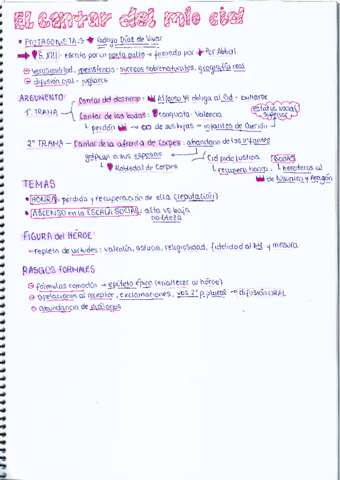 El cantar del mio cid
• PROTAGONISTA: Rodrigo Díaz de Vivar
S. XIII - escrito por un poeta culto → firmado por Per Abbat
⊖ verosimilitud: inexistencia sucesos sobrenaturales, geografía real
⊖ difusión oral - juglares
ARGUMENTO
1ª TRAMA
Cantar del destierro: Alfonso VI obliga al Cid - exiliarse
Cantar de las bodas: conquista Valencia
estatus social superior
perdón → de as hijas → infantes de Carrión
2ª TRAMA - Cantar de la afrenta de Corpes: abandono de los infantes
golpean a sus esposas
Robledal de Corpes
Cid pide justicia
BODAS
recupera honor
herederos al de Navarra y Aragón
TEMAS
• HONRA: pérdida y recuperación de ella (reputación)
• ASCENSO en la ESCALA SOCIAL: alta vs baja
nobleza
FIGURA del HÉROE
repleta de virtudes: valentía, astucia, religiosidad, fidelidad al y mesura
RASGOS FORMALES
⊖ fórmulas comodín → epíteto épico (enaltecer al héroe)
⊖ apelaciones al receptor, exclamaciones, vos 2ª p. plural → difusión ORAL
⊖ abundancia de diálogos